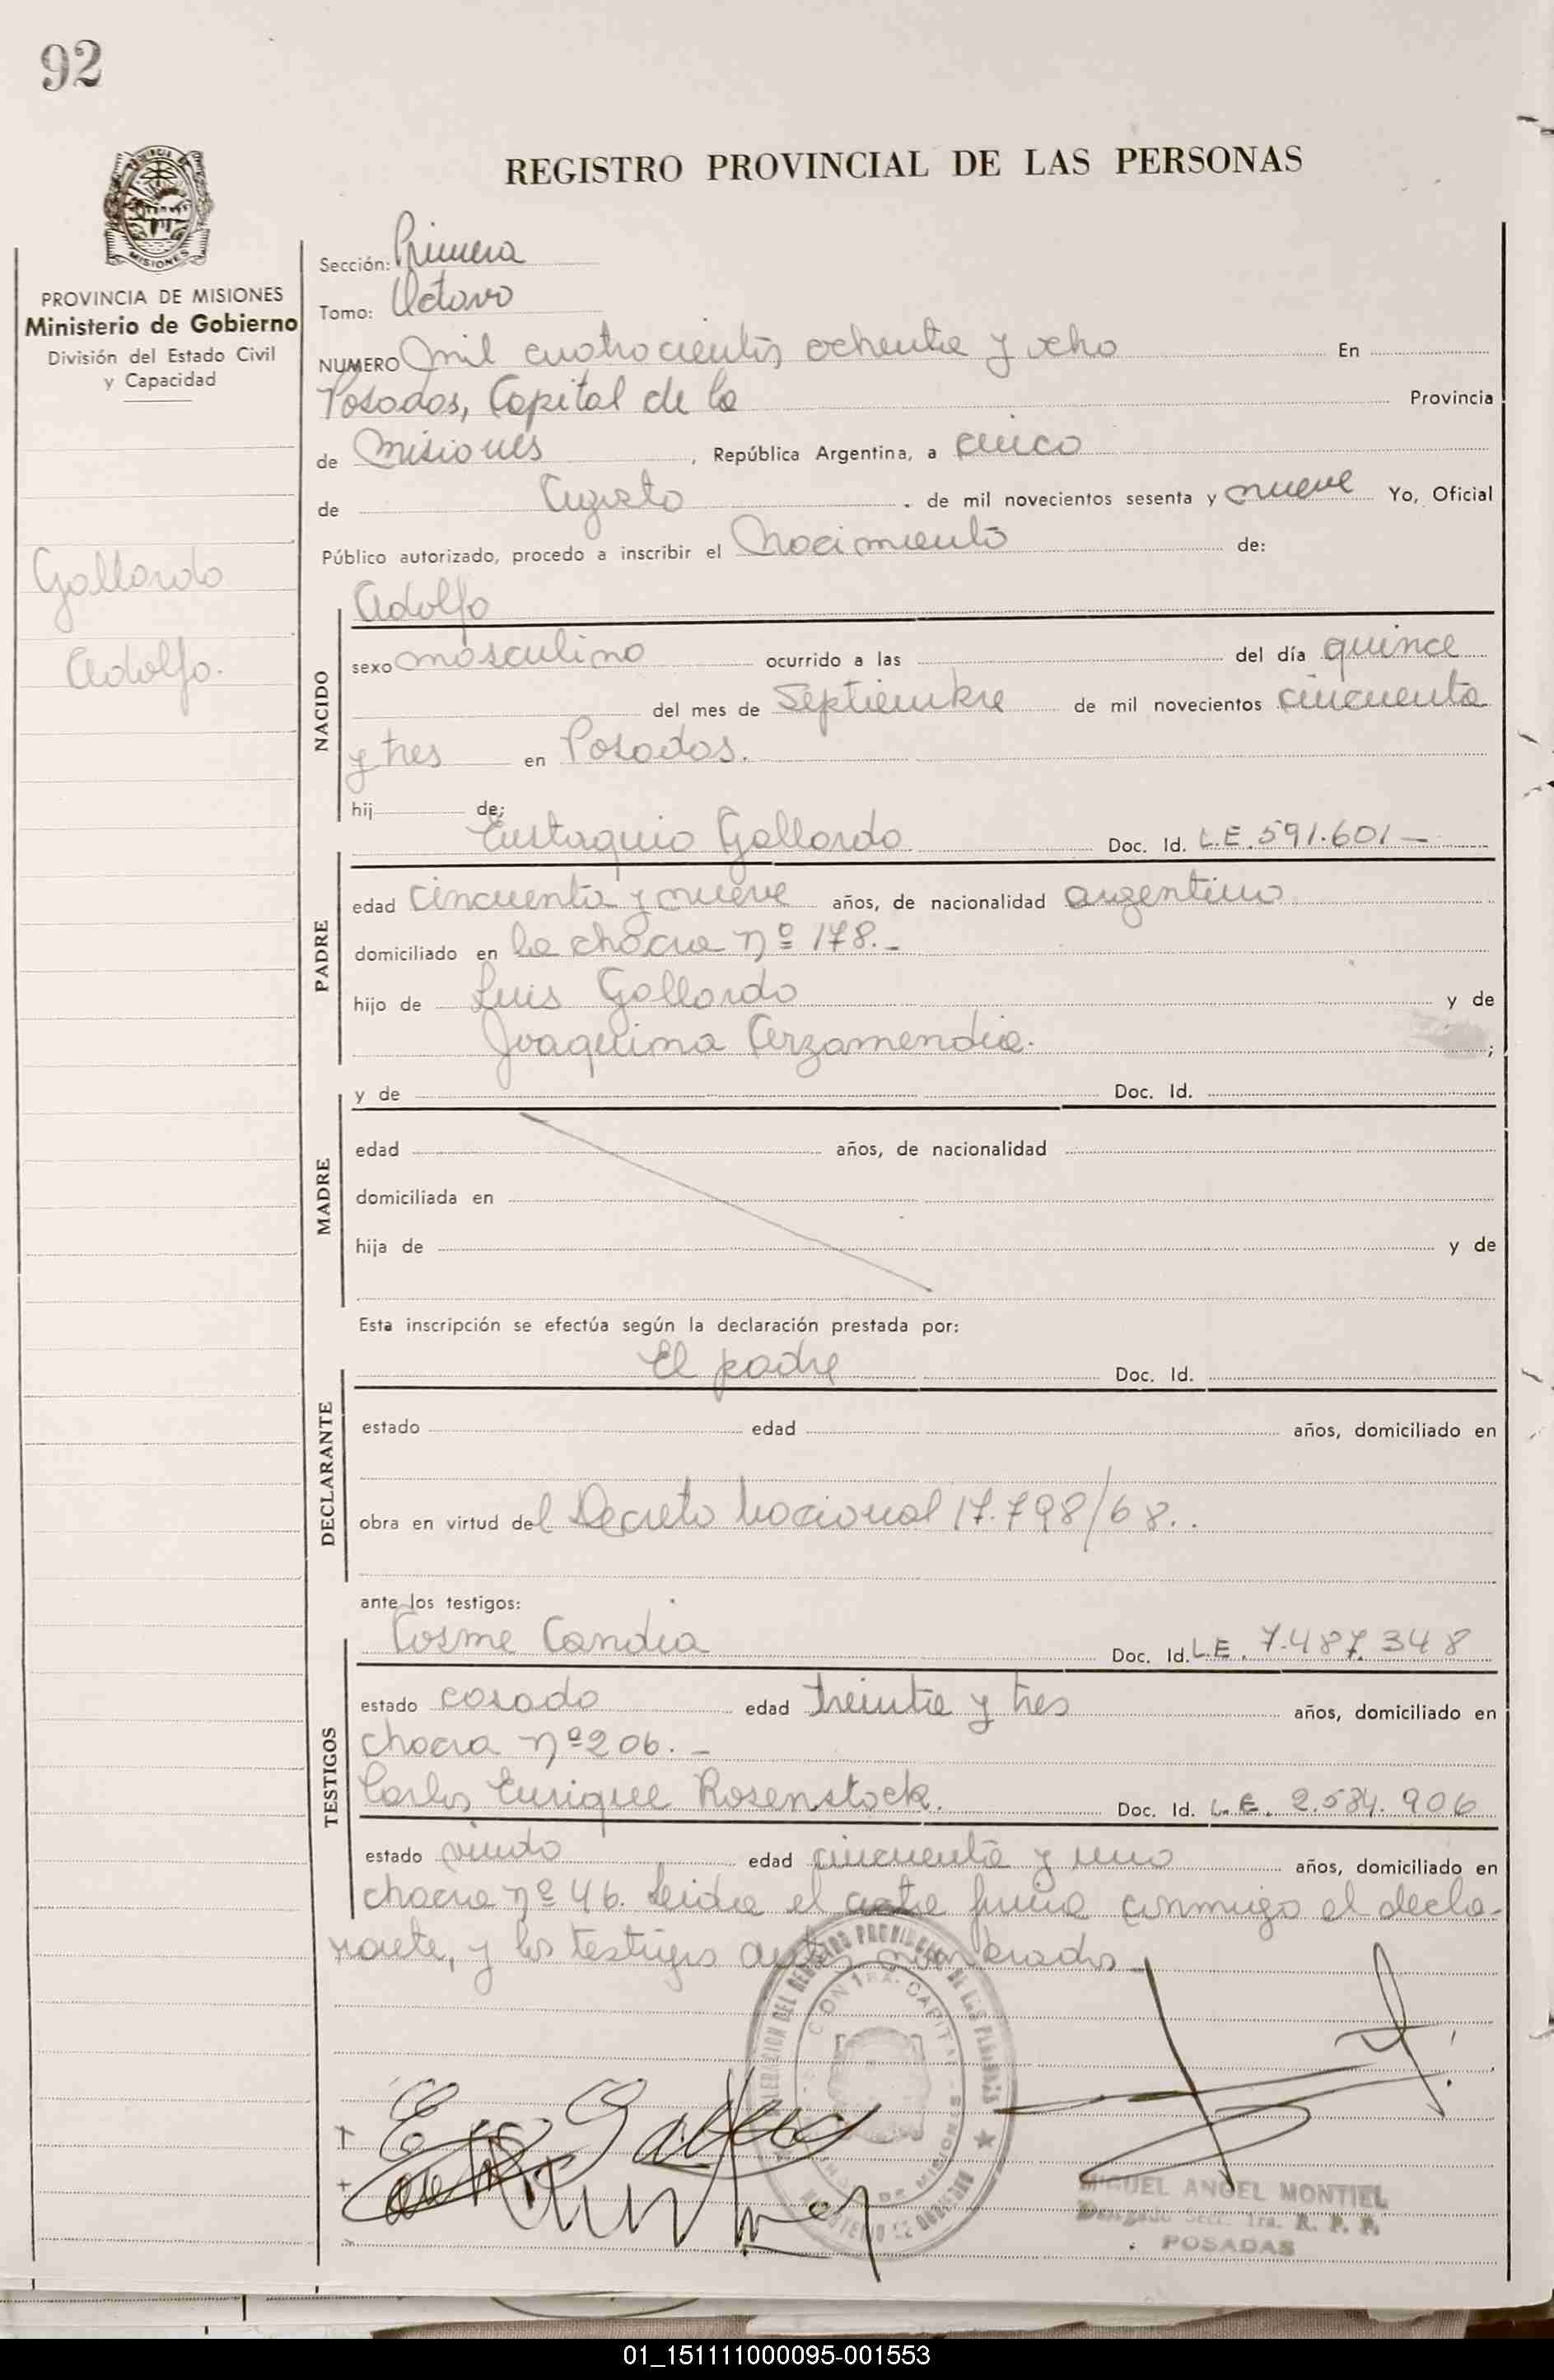 92
REGISTRO PROVINCIAL DE LAS PERSONAS
PROVINCIA DE MISIONES
Ministerio de Gobierno
División del Estado Civil
y Capacidad
Gallardo
Adolfo.
Sección: Primera
Tomo: Octavo
NUMERO mil cuatrocientos ochenta y ocho En
Posadas, Capital de la Provincia
de Misiones, República Argentina, a cinco
de Agosto de mil novecientos sesenta y nueve Yo, Oficial
Público autorizado, procedo a inscribir el Nacimiento de:
NACIDO
Adolfo
sexo masculino ocurrido a las del día quince
del mes de Septiembre de mil novecientos cincuenta
y tres en Posadas.
hij de:
PADRE
Eustaquio Gallardo Doc. Id. L.E. 591.601 -
edad cincuenta y nueve años, de nacionalidad argentino
domiciliado en la chacra nº 178.-
hijo de Luis Gallardo y de
Joaquina Arzamendia. ;
MADRE
y de Doc. Id.
edad años, de nacionalidad
domiciliada en
hija de y de
Esta inscripción se efectúa según la declaración prestada por:
DECLARANTE
El padre Doc. Id.
estado edad años, domiciliado en
obra en virtud del Decreto Nacional 17.798/68..
ante los testigos:
TESTIGOS
Cosme Candia Doc. Id. L.E. 7.487.348
estado casado edad treinta y tres años, domiciliado en
chacra nº 206. -
Carlos Enrique Rosenstock. Doc. Id. L.E. 2.584.906
estado viudo edad cincuenta y uno años, domiciliado en
chacra nº 46. Leída el acta firma conmigo el decla-
rante, y los testigos antes nombrados.-
MIGUEL ANGEL MONTIEL
Delegado Secc. 1ra. R. P. P.
POSADAS
01_151111000095-001553